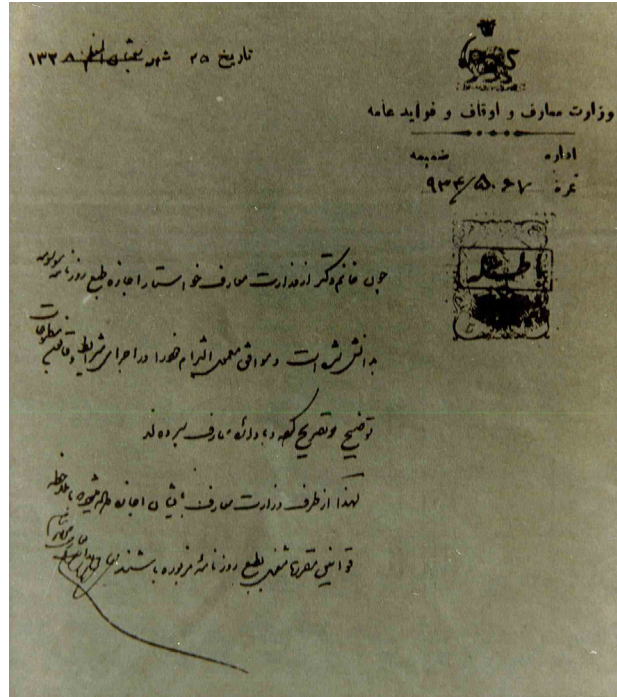 تاریخ ۲۵ شهر شعبان المعظم ۱۳۲۸
وزارت معارف و اوقاف و فواید عامه
اداره ضمیمه
نمره ۹۳۴/۵۰۶۷
چون خانم دکتر از وزارت معارف خواستار اجازه طبع روزنامه موسومه
بدانش شده است و موافق معمول التزام خود را در اجرای شرایط و قانون مطبوعات
توضیح و تصریح کرده و باداره معارف سپرده اند
لهذا از طرف وزارت معارف بایشان اجازه داده میشود با ملاحظه
قوانین مقرره مشغول بطبع روزنامه مزبوره باشند